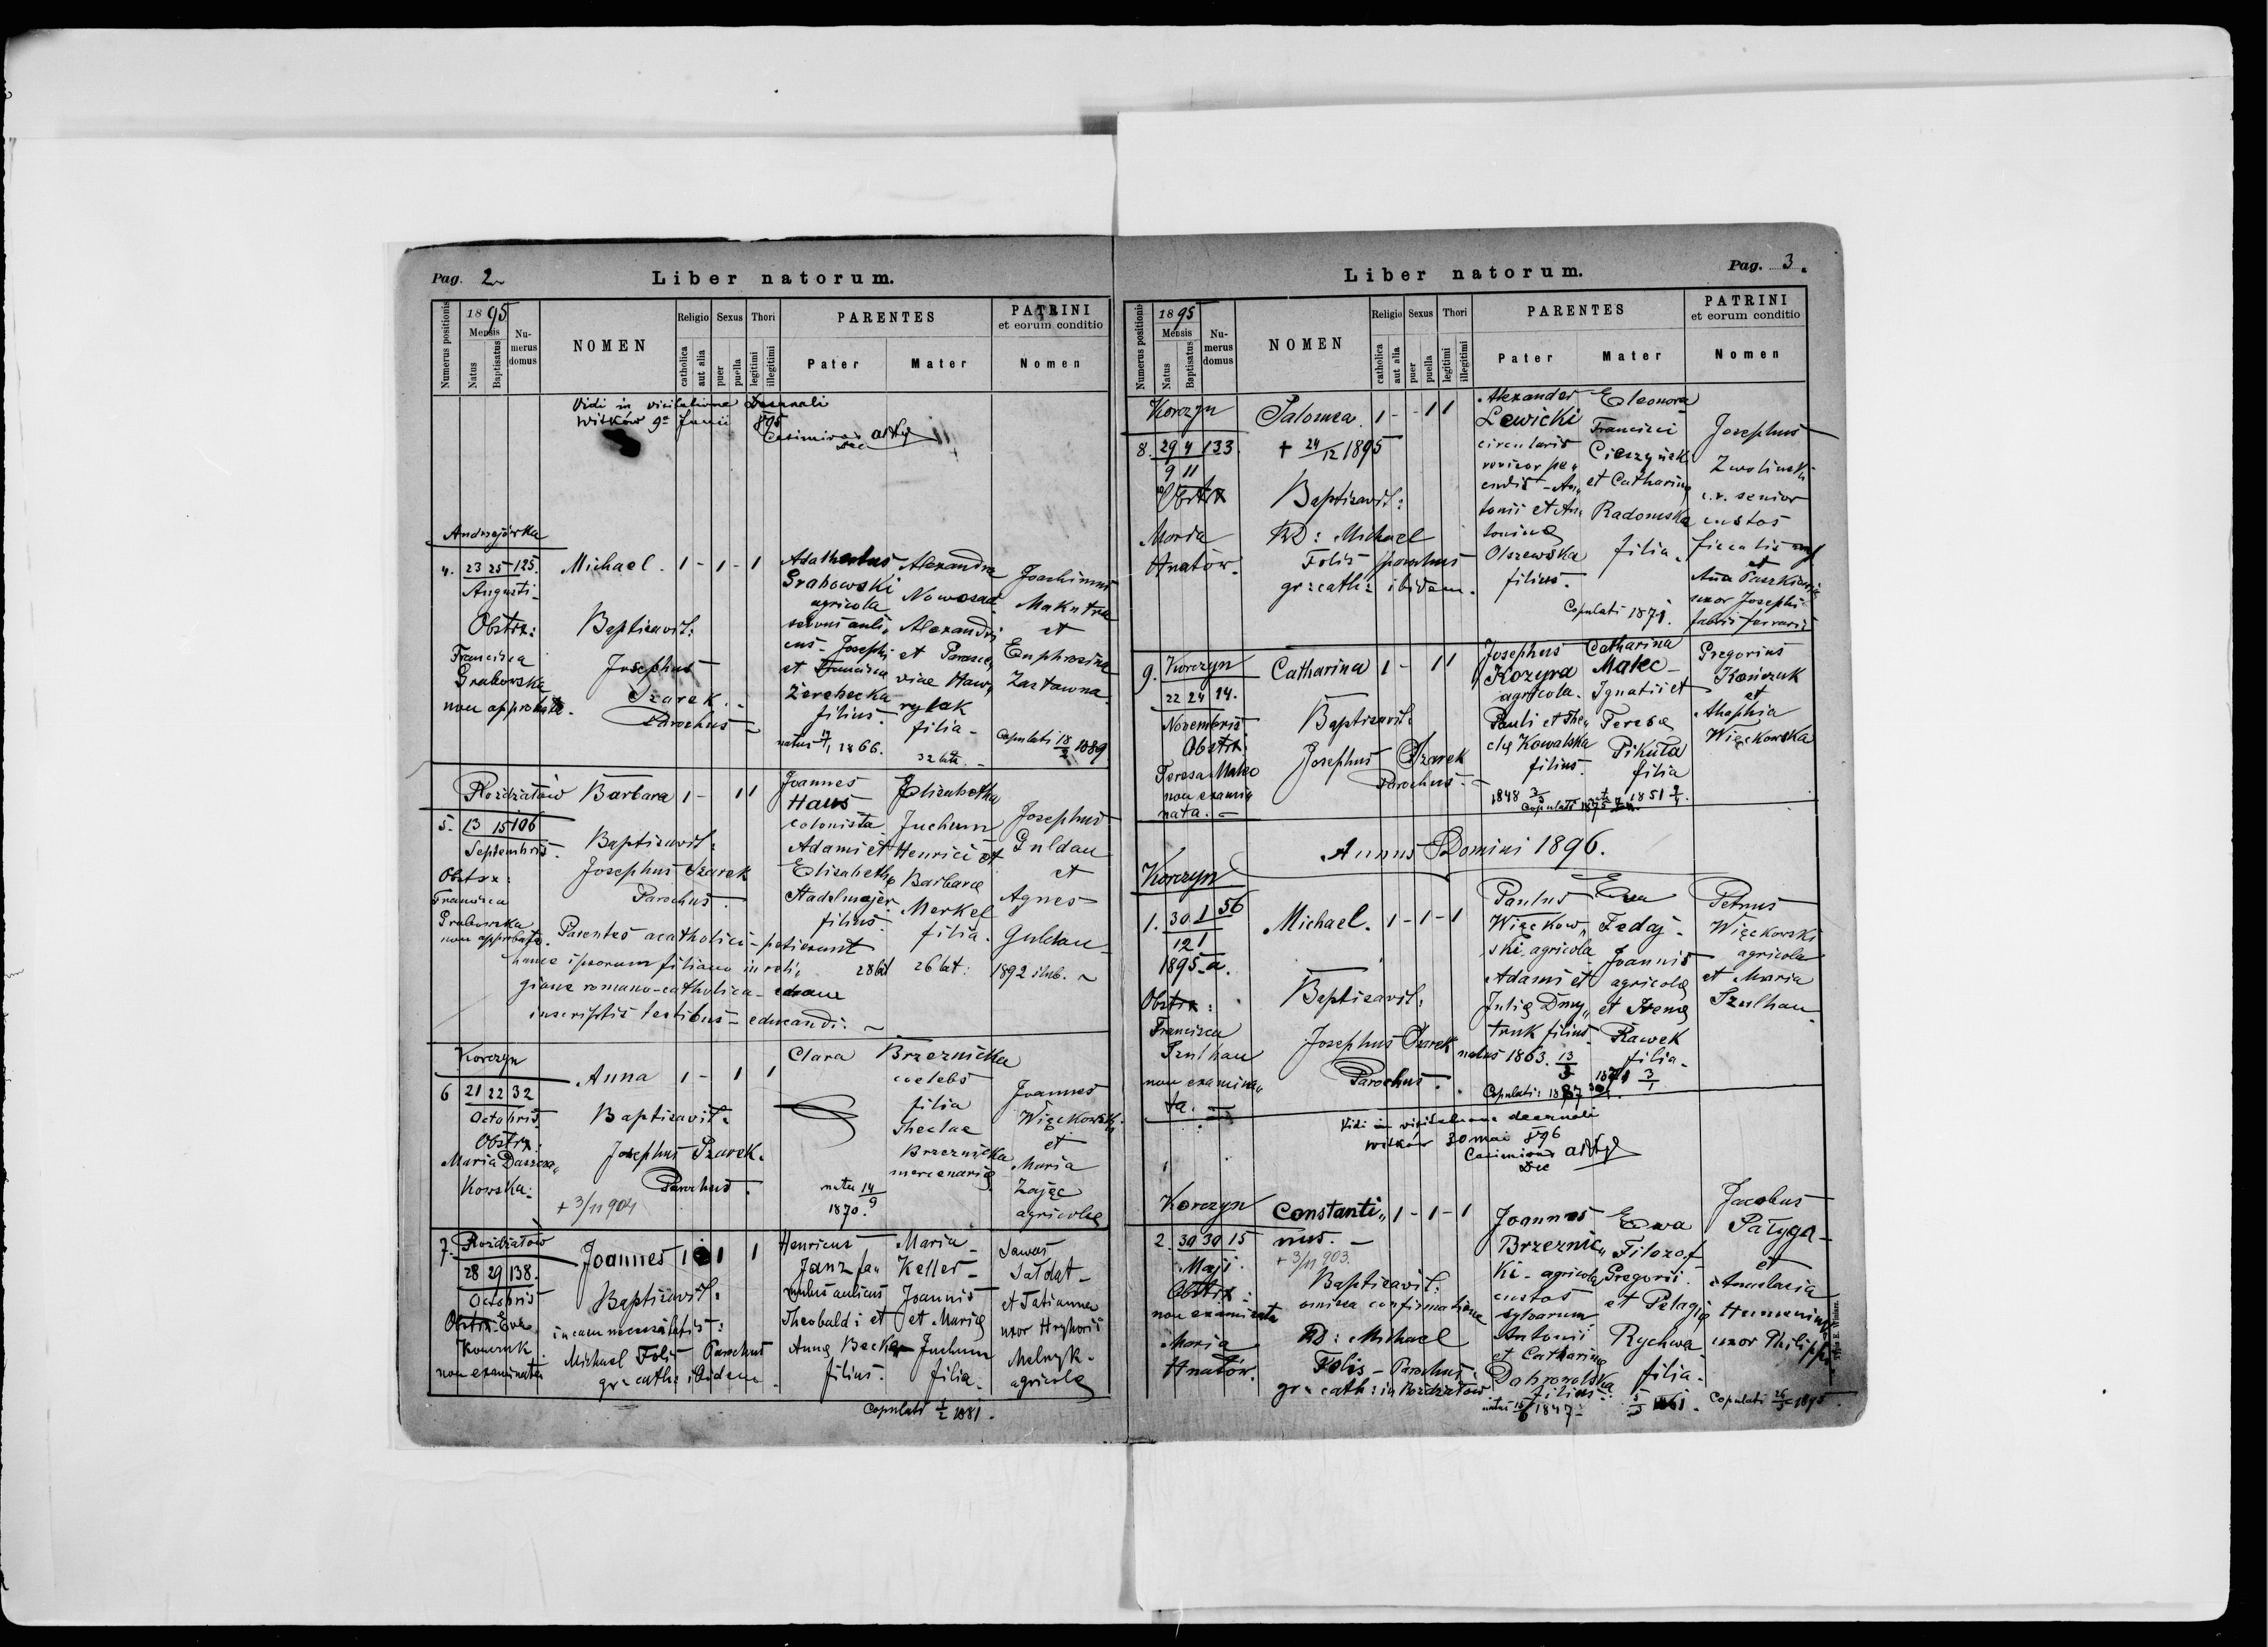 Pag. 2
Liber natorum.
Numerus positionis
1895
Mensis
Natus
Baptisatus
Nu-
merus
domus
NOMEN
Religio
catholica
aut alia
Sexus
puer
puella
Thori
legitimi
illegitimi
PARENTES
Pater
Mater
PATRINI
et eorum conditio
Nomen
Vidi in visitatione Decanali
Witków 9a Junii 895
Casimirus
Dec
Andrzejówka
4. 23 25 125. Michael. 1 - 1 - 1
Augusti
Obstx:
Francisca
Grabowska
non approbata.
Baptisavit:
Josephus
Szarek
Parochus
Adalbertus
Grabowski
agricola
servus auli„
cus - Josephi
et Francisca
Zerebecka
filius.
natus 1866.
Alexandra
Nowosad
Alexandri
et Parasce„
viae Haw„
rylak
filia
32 lata.
Joachimus
Makutra
et
Euphrosina
Zastawna
Copulati 18/2 1889
Rozdziałow Barbara 1 - 1 1
5. 13 15 106
Septembris.
Obstx:
Francisca
Grabowska
non approbata.
Baptisavit:
Josephus Szarek
Parochus.
Joannes
Haus
colonista
Adami et
Elisabetha
Stadelmajer
filius.
Elisabetha
Juchum
Henrici et
Barbara
Merkel
filia.
Josephus
Guldau
et
Agnes
Guldau
Parentes acatholici - petierunt
hanc ipsorum filiam in reli„
gione romano-catholica
inscriptis testibus - educandi.
28 lat 26 lat: 1892 slub.
Korczyn
6 21 22 32 Anna 1 - 1 1
Octobris
Obstx:
Maria Daszcza„
kowska
Baptisavit:
Josephus Szarek.
Parochus.
+ 3/11 904
Clara Brzeznicka
coelebs
filia
Theclae
Brzeznicka
mercenaria
nata 14/9
1870.
Joannes
Więckowski
et
Maria
Zając
agricola
7. Rozdziałow Joannes 1 1 1
28 29 138.
Octobris
Obstx Eva
Kowczuk
non examinata
Baptisavit:
in casu necessitatis:
Michael Folis Parochus
gr: cath: ibidem
Henricus
Janz fa„
mulus aulicus
Theobaldi et
Anna Becker
filius.
Maria
Keller
Joannis
et Maria
Juchum
filia.
Sawas
Sałdat
et Tatianna
uxor Hryhorii
Melnyk
agricola
Copulati 1/2 1881.
Liber natorum.
Pag. 3.
Numerus positionis
1895
Mensis
Natus
Baptisatus
Nu-
merus
domus
NOMEN
Religio
catholica
aut alia
Sexus
puer
puella
Thori
legitimi
illegitimi
PARENTES
Pater
Mater
PATRINI
et eorum conditio
Nomen
Korczyn Salomea 1 - - 1 1
8. 29 4 133. + 24/12 1895
9 11
Obstx
Maria
Hnatów.
Baptisavit:
RD: Michael
Folis parochus
gr: cath: ibidem.
Alexander
Lewicki
circularis
revisor pe„
cudis - An„
tonii et An„
tonina
Olszewska
filius.
Eleonora
Francisci
Cieszyński
et Catharina
Radomska
filia.
Josephus
Zwolinski
c.r. senior
custos
et
Anna Paszkiewicz
uxor Josephi
fabri ferrarii
Copulati 1871.
9. Korczyn Catharina 1 - 1 1
22 24 14.
Novembris
Obstx:
Teresa Malec
non exami„
nata.
Baptisavit:
Josephus Szarek
Parochus.
Josephus
Kozyra
agricola.
Pauli et The„
cla Kowalska
filius.
Catharina
Malec
Ignatii et
Teresa
Pikuta
filia
Gregorius
Kończuk
et
Ahaphia
Więckowska
Annus Domini 1896.
Korczyn
1. 30 1 56 Michael. 1 - 1 - 1
12 1
1895 a.
Obstx:
Francisca
Szulhan
non examina„
ta.
Baptisavit:
Josephus Szarek
Parochus.
Paulus
Więckow„
ski agricola
Adami et
Julia Dmy„
truk filius.
natus 1863. 13/3
Eva
Fedaj
Joannis
agricola
et Irena
Rawek
filia.
Petrus
Więckowski
agricola
et Maria
Szulhan
Vidi in visitatione decanali
Witków 30 mai 896
Casimirus
Dec
Korczyn Constanti„ 1 - 1 - 1
nus.
2. 30 30 15 + 3/11 903.
Maji
Obstx:
non examinata
Maria
Hnatów.
Baptisavit:
omissa confirmatione
RD: Michael
Folis - Parochus
gr: cath: in Rozdziałow
Joannes
Brzeznic„
ki - agricola
custos
sylvarum
Antonii
et Catharina
Dabrowolska
filius.
Ewa
Filozof
Gregorii
et Pelagia
Rychwa
filia.
Jacobus
Pałyga
et
Anastasia
uxor Philippi
Copulati
Typis E. Winiarz.